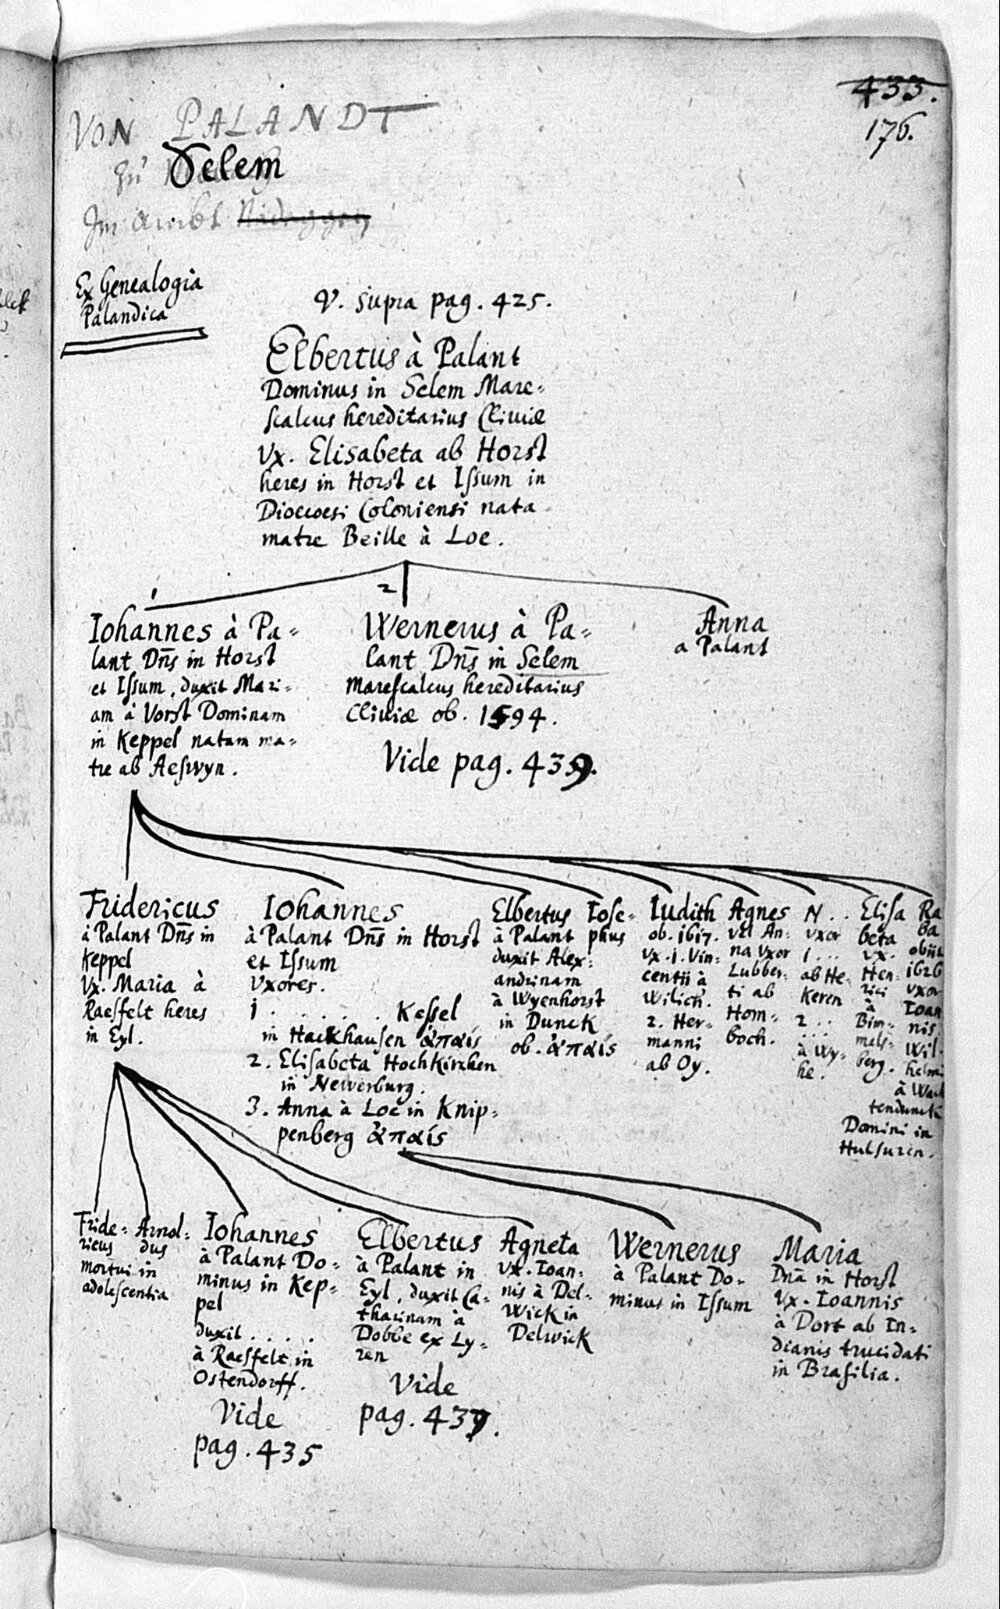 433.
176.
VON PALANDT
Zu Selem
Im Ambt Nideggen
Ex Genealogia
Palandica
V. supra pag. 425.
Elbertus à Palant
Dominus in Selem Mare-
scalcus hereditarius Cliviæ
Vx. Elisabeta ab Horst
heres in Horst et Issum in
Dioecesi Coloniensi nata
matre Beille à Loe.
1
2
Iohannes à Pa-
lant Dn̄s in Horst
et Issum, duxit Mari-
am à Vorst Dominam
in Keppel natam ma-
tre ab Aeswyn.
Wernerus à Pa-
lant Dn̄s in Selem
Marescalcus hereditarius
Cliviæ ob. 1594.
Vide pag. 439.
Anna
a Palant
Fridericus
à Palant Dn̄s in
Keppel
Vx. Maria à
Raesfelt heres
in Eyl.
Iohannes
à Palant Dn̄s in Horst
et Issum
Vxores.
1 . . . . . . Kessel
in Hackhausen ἄπαίς
2. Elisabeta Hochkirchen
in Newerburg.
3. Anna à Loe in Knip-
penberg ἄπαίς
Elbertus
à Palant
duxit Alex-
andrinam
à Wyenhorst
in Dunck
ob. ἄπαίς
Iose-
phus
Iudith
ob. 1617.
Vx. 1. Vin-
centii à
Wilich.
2. Her-
manni
ab Oy.
Agnes
vel An-
na Vxor
Lubber-
ti ab
Hom-
boch.
N . .
Vxor
1 . . .
ab He-
Keren
2 . .
. . .
à Wy-
he.
Elisa
beta
Vx.
Hen-
rici
à
Bim-
mels-
berg.
Ra
ba
obiit
1626
Vxor
Ioan
nis
Wil-
helmi
à Wach
tendunck
Domini in
Hulsuren.
Fride-
ricus
Arnol-
dus
mortui in
adolescentia
Iohannes
à Palant Do-
minus in Kep-
pel
duxit . . . .
à Raesfelt in
Ostendorff.
Vide
pag. 435
Elbertus
à Palant in
Eyl, duxit Ca-
tharinam à
Dobbe ex Ly-
ren
Vide
pag. 437.
Agneta
Vx. Ioan-
nis à Del-
Wick in
Delwick
Wernerus
à Palant Do-
minus in Issum
Maria
Dn̄a in Horst
Vx. Ioannis
à Dort ab In-
dianis trucidati
in Brasilia.